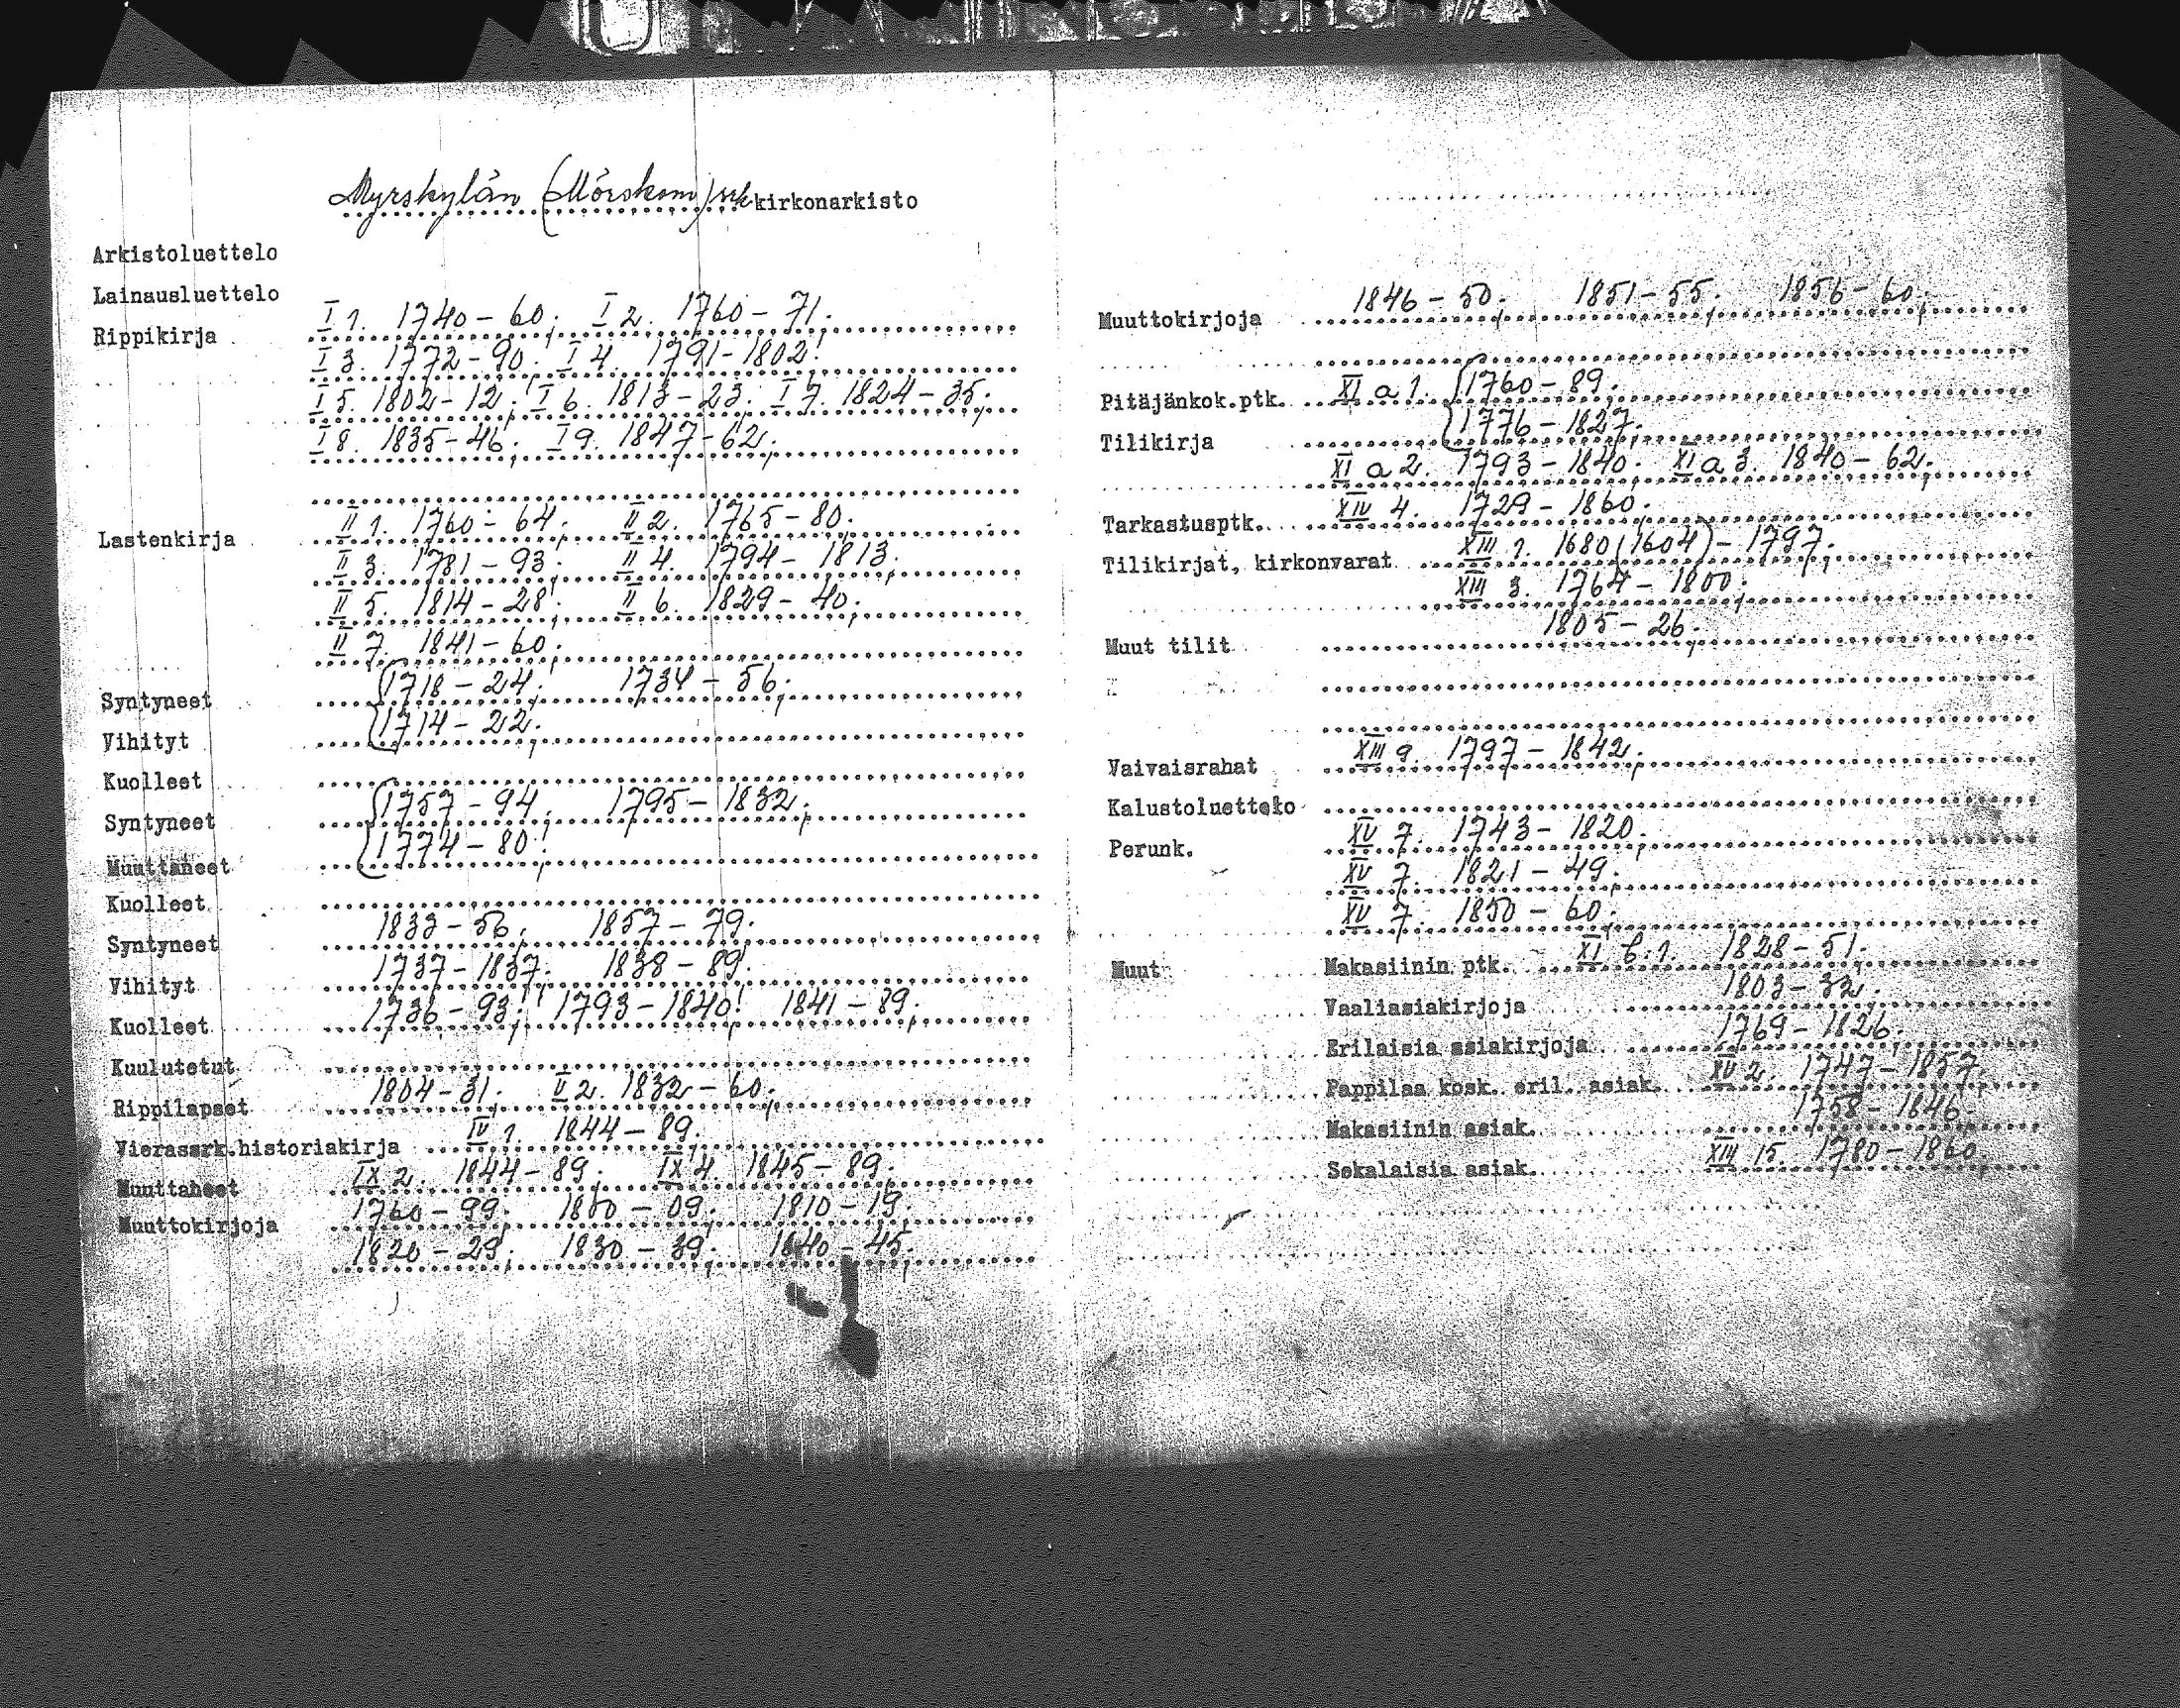 Myrskylän (Mörskom) srk kirkonarkisto
Arkistoluettelo
Lainausluettelo
Rippikirja I 1. 1740-60; I 2. 1760-71;
I 3. 1772-90; I 4. 1791-1802;
I 5. 1802-12; I 6. 1813-23; I 7. 1824-35;
I 8. 1835-46; I 9. 1847-62;
Lastenkirja II 1. 1760-64; II 2. 1765-80;
II 3. 1781-93; II 4. 1794-1813;
II 5. 1814-28; II 6. 1829-40;
II 7. 1841-60;
Syntyneet {1718-24; 1734-56;
Vihityt {1714-22;
Kuolleet
Syntyneet {1757-94; 1795-1832;
Muuttaneet {1774-80;
Kuolleet
Syntyneet 1833-56; 1857-79;
Vihityt 1737-1837; 1838-89;
Kuolleet 1736-93; 1793-1840; 1841-89;
Kuulutetut
Rippilapset 1804-31; II 2. 1832-60;
Vierassrk.historiakirja IV 1. 1844-89;
Muuttaneet IX 2. 1844-89; IX 4. 1845-89;
Muuttokirjoja 1760-99; 1800-09; 1810-19;
1820-29; 1830-39; 1840-45;
Muuttokirjoja 1846-50; 1851-55; 1856-60;
Pitäjänkok.ptk. XI a 1. {1760-89;
Tilikirja {1776-1827;
XI a 2. 1793-1840; XI a 3. 1840-62;
Tarkastusptk. XIV 4. 1729-1860;
Tilikirjat, kirkonvarat XIII 1. 1680(1604)-1797;
XIII 3. 1764-1800;
Muut tilit 1805-26;
Vaivaisrahat XIII 9. 1797-1842;
Kalustoluettelo
Perunk. XV 7. 1743-1820;
XV 7. 1821-49;
XV 7. 1850-60;
Muut Makasiinin ptk. XI b.1. 1828-51;
Vaaliasiakirjoja 1803-32;
Erilaisia asiakirjoja 1769-1826;
Pappilaa kosk. eril. asiak. XV 2. 1747-1857
Makasiinin asiak. 1758-1846;
Sekalaisia asiak. XIII 15. 1780-1860;